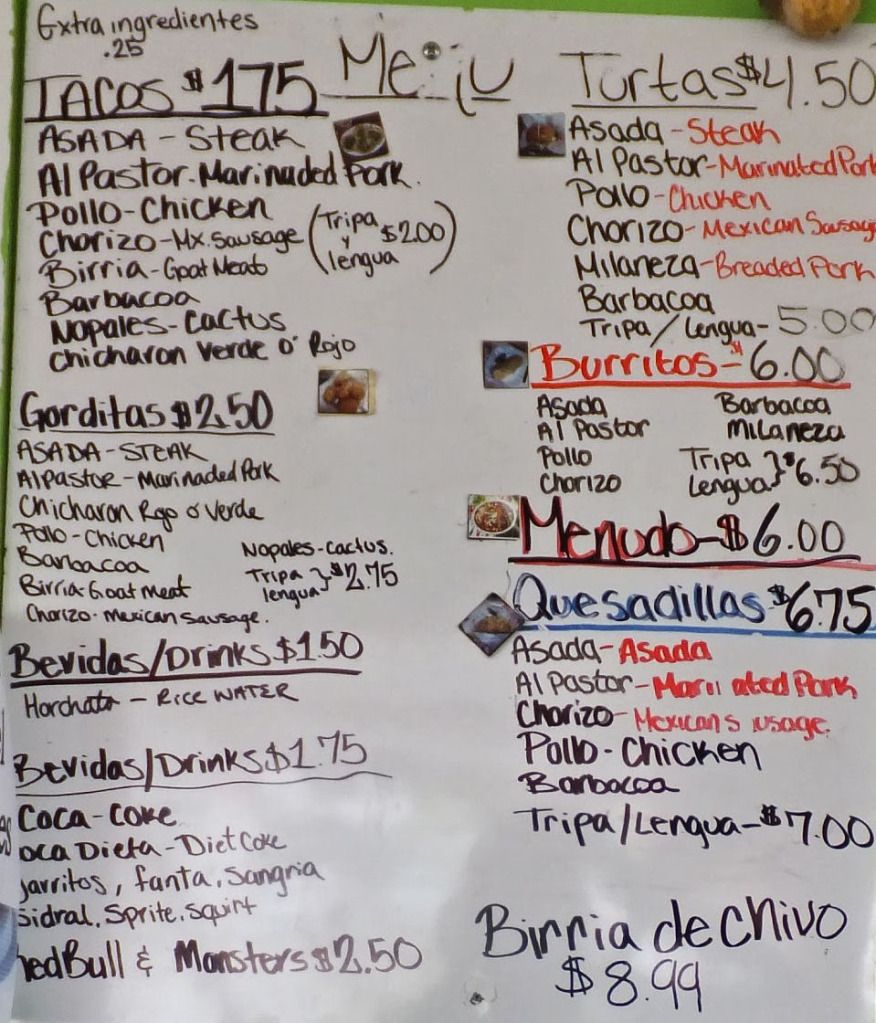 Extra ingredientes
.25
Menu
TACOS $1.75
ASADA - Steak
Al Pastor. Marinaded Pork.
Pollo-Chicken
Chorizo-Mx. Sausage
Birria-Goat Meat
(Tripa y lengua $2.00)
Barbacoa
Nopales-Cactus
Chicharon Verde O' Rojo
Gorditas $2.50
ASADA-STEAK
Al Pastor-Marinaded Pork
Chicharon Rojo o' Verde
Pollo-Chicken
Barbacoa
Birria-Goat meat
Chorizo-Mexican Sausage.
Nopales-Cactus.
Tripa
lengua } $2.75
Bevidas/Drinks $1.50
Horchata - RICE WATER
Bevidas/Drinks $1.75
Coca-Coke
oca Dieta-Diet Coke
Jarritos, fanta, Sangria
Sidral, Sprite, Squirt
RedBull & Monsters $2.50
Turtas $4.50
Asada-Steak
Al Pastor-Marinated Pork
Pollo-Chicken
Chorizo-Mexican Sausage
Milaneza-Breaded Pork
Barbacoa
Tripa/Lengua-5.00
Burritos-$6.00
Asada
Al Pastor
Pollo
Chorizo
Barbacoa
Milaneza
Tripa
Lengua } $6.50
Menudo-$6.00
Quesadillas $6.75
Asada-Asada
Al Pastor-Mari ated Pork
Chorizo-Mexican S usage.
Pollo-Chicken
Barbacoa
Tripa/Lengua-$7.00
Birria de Chivo
$8.99